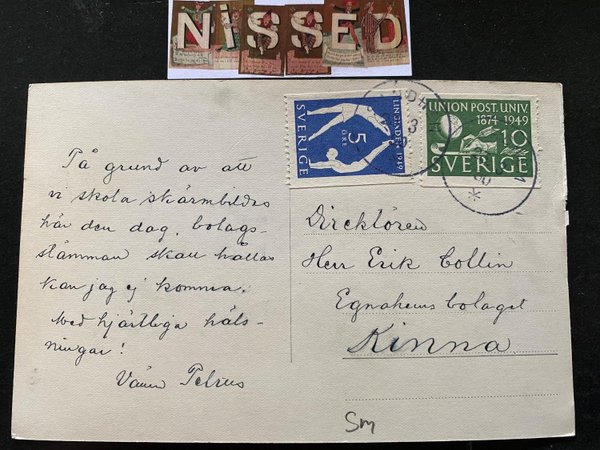 NiSSED
LINGIADEN 1949
5
ÖRE
SVERIGE
UNION POST. UNIV.
1874 1949
10
SVERIGE
På grund av att
vi skola skärmbildas
här den dag, bolags-
stämman skall hållas
kan jag ej komma.
Med hjärtliga häls-
ningar!
Vännen Petrus
Direktören
Herr Erik Collin
Egnahemsbolaget
Kinna
Sm